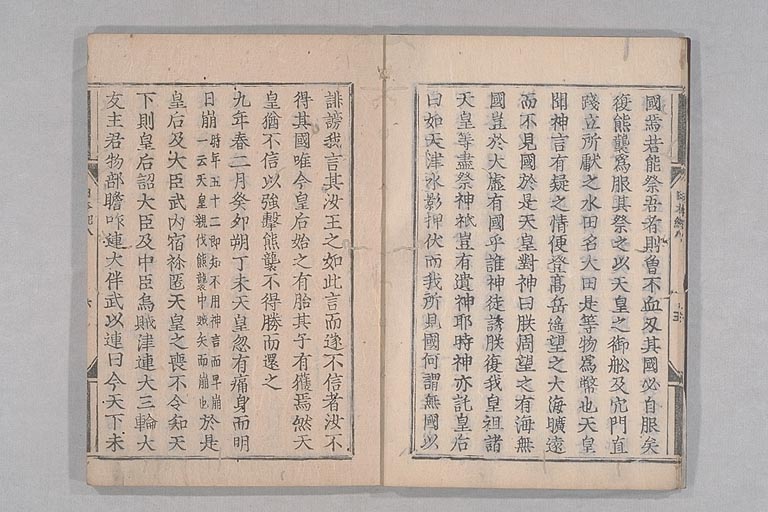 國焉若能祭吾者則曽不血刄其國必自服矣
復熊襲爲服其祭之以天皇之御舩及穴門直
踐立所獻之水田名大田是等物爲幣也天皇
聞神言有疑之情便登髙岳遥望之大海曠遠
而不見國於是天皇對神曰朕周望之有海無
國豈於大虚有國乎誰神徒誘朕復我皇祖諸
天皇等盡祭神祇豈有遺神耶時神亦託皇后
曰如天津水影押伏而我所見國何謂無國以
誹謗我言其汝王之如此言而遂不信者汝不
得其國唯今皇后始之有胎其子有獲焉然天
皇猶不信以強擊熊襲不得勝而還之
九年春二月癸卯朔丁未天皇忽有痛身而明
日崩時年五十二即知不用神言而早崩
一云天皇親伐熊襲中賊矢而崩也於是
皇后及大臣武内宿祢匿天皇之喪不令知天
下則皇后詔大臣及中臣烏賊津連大三輪大
友主君物部膽咋連大伴武以連曰今天下未